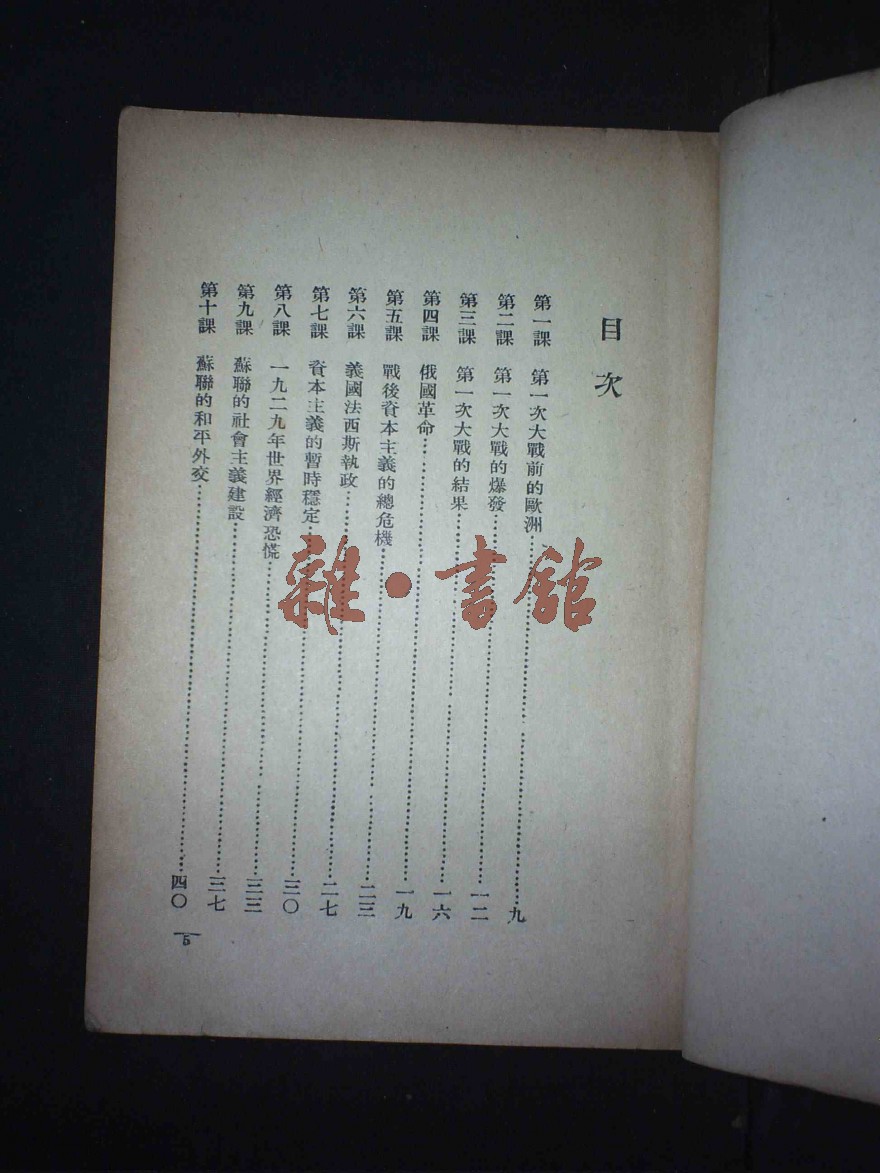 目次
第一課　第一次大戰前的歐洲……九
第二課　第一次大戰的爆發……一二
第三課　第一次大戰的結果……一六
第四課　俄國革命……一九
第五課　戰後資本主義的總危機……二三
第六課　義國法西斯執政……二七
第七課　資本主義的暫時穩定……三〇
第八課　一九二九年世界經濟恐慌……三三
第九課　蘇聯的社會主義建設……三七
第十課　蘇聯的和平外交……四〇
5
雜·書館